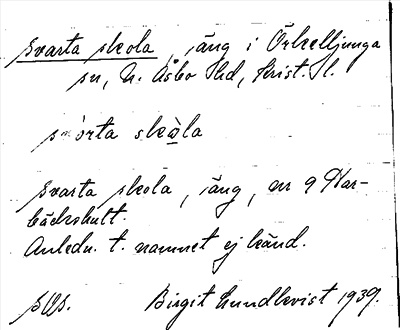 Svarta skola, äng i Örkelljunga
sn, N. Åsbo hd, Krist. l.
svårta skåla
Svarta skola, äng, nr 9 Har-
bäckshult.
Anledn. t. namnet ej känd.
Birgit Lundkvist 1939.